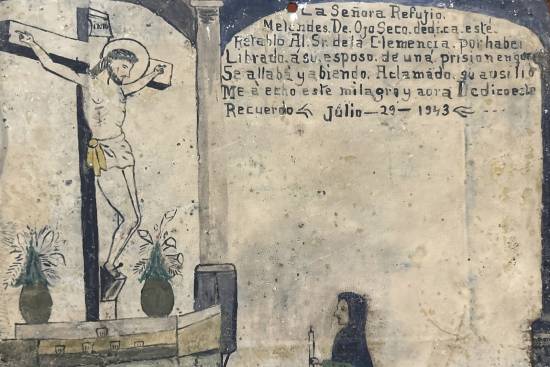 INRI
La Señora Refugio.
Melendes. De. Ojo Seco. dedica. esté.
Retablo Al. Sr. de la Clemencia, por haber
Librado. a su. esposo. de. una. prision en que
Se allaba y abiendo. Aclamado, su ausilio
Me a echo este milagro y aora Dedico este
Recuerdo Júlio—29—1943